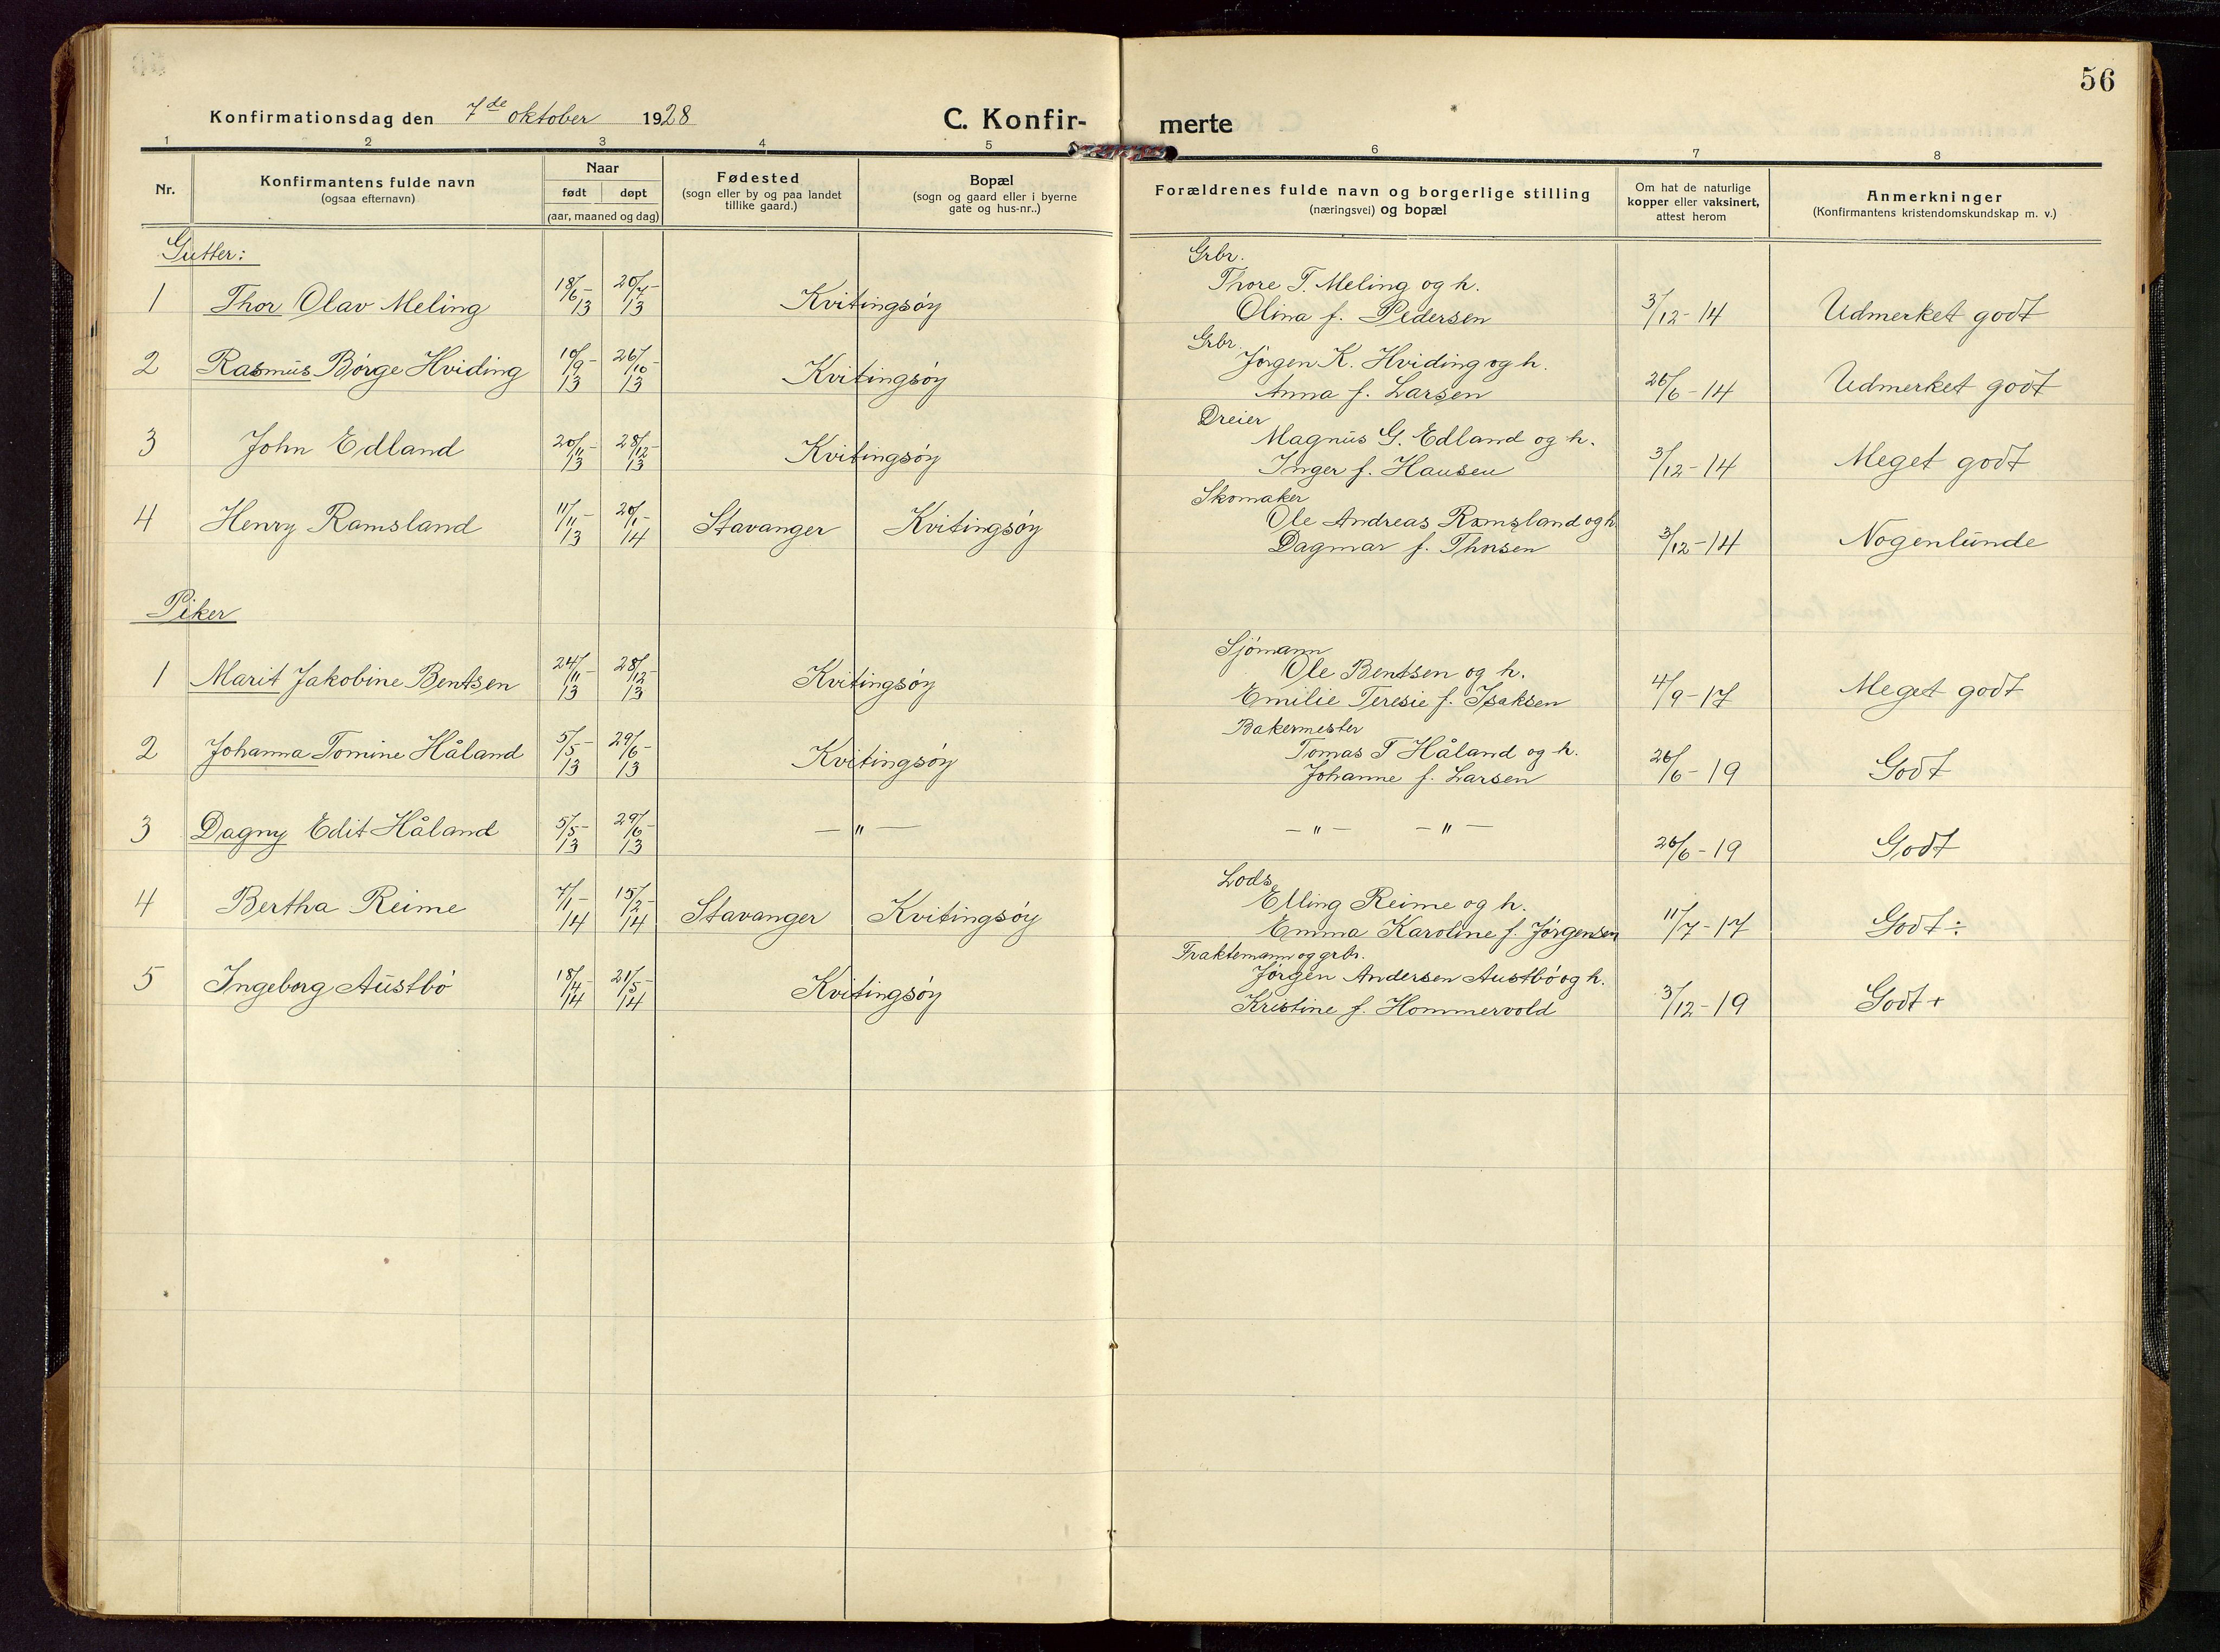 56
Konfirmationsdag den 7de oktober 1928
C. Konfir-
merte
1 2 3 4 5 6 7 8
Nr.
Konfirmantens fulde navn
(ogsaa efternavn)
Naar
født døpt
(aar, maaned og dag)
Fødested
(sogn eller by og paa landet
tillike gaard.)
Bopæl
(sogn og gaard eller i byerne
gate og hus-nr..)
Forældrenes fulde navn og borgerlige stilling
(næringsvei) og bopæl
Om hat de naturlige
kopper eller vaksinert,
attest herom
Anmerkninger
(Konfirmantens kristendomskundskap m. v.)
Gutter:
1 Thor Olav Meling 18/6-13 20/7-13 Kvitingsøy
Grbr.
Thore T. Meling og h.
Olina f. Pedersen 3/12-14 Udmerket godt
2 Rasmus Børge Hviding 10/9-13 26/10-13 Kvitingsøy
Grbr.
Jørgen K. Hviding og h.
Anna f. Larsen 26/6-14 Udmerket godt
3 John Edland 20/11-13 28/12-13 Kvitingsøy
Dreier
Magnus G. Edland og h.
Inger f. Hansen 3/12-14 Meget godt
4 Henry Ramsland 11/11-13 20/1-14 Stavanger Kvitingsøy
Skomaker
Ole Andreas Ramsland og h
Dagmar f. Thorsen 3/12-14 Nogenlunde
Piker
1 Marit Jakobine Bentsen 24/11-13 28/12-13 Kvitingsøy
Sjømann
Ole Bentsen og h.
Emilie Teresie f. Isaksen 4/9-17 Meget godt
2 Johanna Tomine Håland 5/5-13 29/6-13 Kvitingsøy
Bakermester
Tomas T Håland og h.
Johanne f. Larsen 26/6-19 Godt
3 Dagny Edit Håland 5/5-13 29/6-13 — " —
— " — — " —
26/6-19 Godt
4 Bertha Reime 7/1-14 15/2-14 Stavanger Kvitingsøy
Lods
Elling Reime og h.
Emma Karoline f. Jørgensen 11/7-17 Godt ÷
5 Ingeborg Austbø 18/4-14 21/5-14 Kvitingsøy
Fraktemann og grbr.
Jørgen Andersen Austbø og h.
Kristine f. Hommervold 3/12-19 Godt +